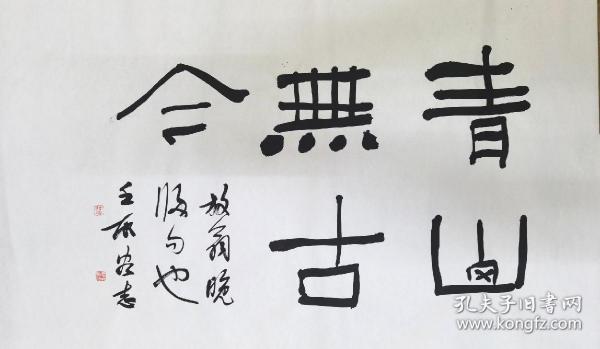 青山
無古
今
放翁晚
句也
孔夫子旧书网
www.kongfz.com